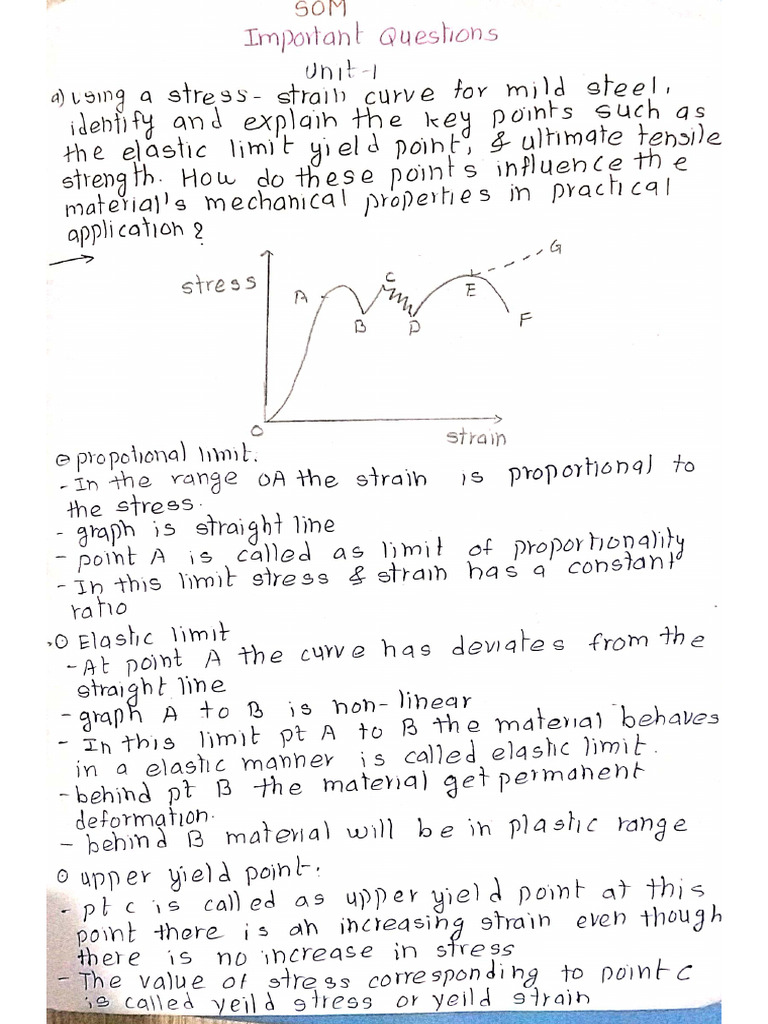 SOM
Important Questions
Unit-1
a) using a stress-strain curve for mild steel,
identify and explain the key points such as
the elastic limit yield point, & ultimate tensile
strength. How do these points influence the
material's mechanical properties in practical
application?
stress
A
B
C
D
E
F
G
O
strain
propotional limit.
- In the range OA the strain is proportional to
the stress.
- graph is straight line
- point A is called as limit of proportionality
- In this limit stress & strain has a constant
ratio
Elastic limit
- At point A the curve has deviates from the
straight line
- graph A to B is non-linear
- In this limit pt A to B the material behaves
in a elastic manner is called elastic limit.
- behind pt B the material get permanent
deformation.
- behind B material will be in plastic range
upper yield point.
- pt c is called as upper yield point at this
point there is an increasing strain even though
there is no increase in stress
- The value of stress corresponding to point C
is called yeild stress or yeild strain